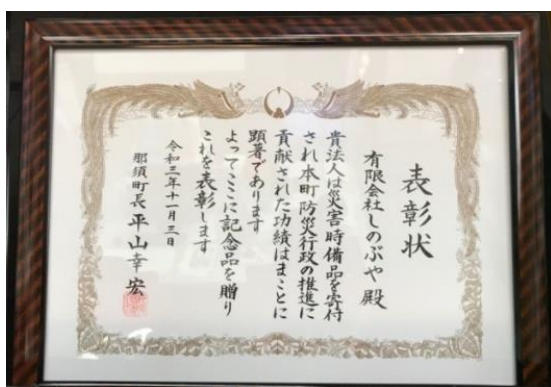 表彰状
有限会社しのぶや殿
貴法人は災害時備品を寄付
され本町防災行政の推進に
貢献された功績はまことに
顕著であります
よってここに記念品を贈り
これを表彰します
令和三年十一月三日
那須町長平山幸宏